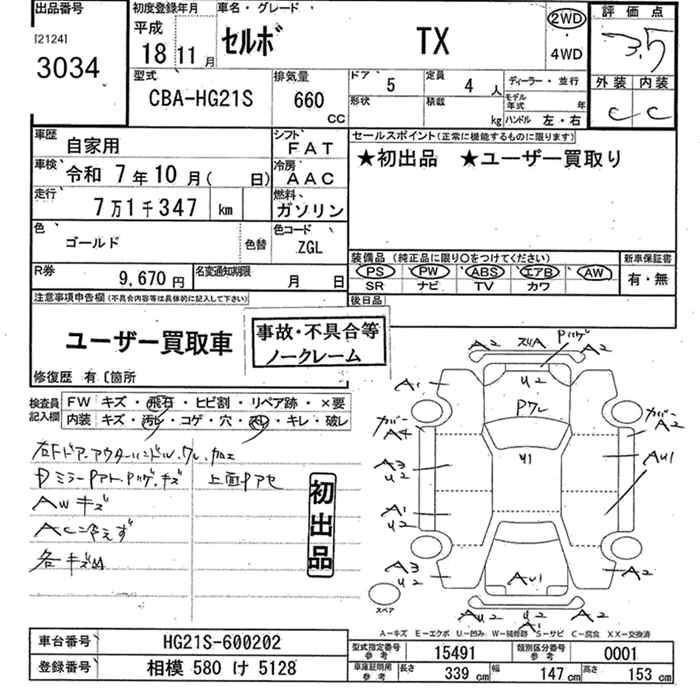 出品番号 初度登録年月 車名・グレード 評価点
[2124] 平成 セルボ TX 2WD 3.5
3034 18年 11月 4WD
型式 排気量 ドア 5 定員 4人 ディーラー・並行 外装 内装
CBA-HG21S 660 cc 形状 積載 kg モデル年式 年 C C
ハンドル 左・右
車歴 自家用 シフト FAT セールスポイント(正常に機能するものに限ります)
車検 令和 7年 10月( 日) 冷房 AAC ★初出品 ★ユーザー買取り
走行 7万1千347 km 燃料 ガソリン
色 ゴールド 色替 色コード ZGL
装備品 (純正品に限り○をつけてください) 新車保証書
R券 9,670円 名変通知期限 月 日 PS PW ABS エアB AW 有・無
SR ナビ TV カワ
注意事項申告欄(不具合内容等は具体的に記入して下さい) 後日品
ユーザー買取車 事故・不具合等
ノークレーム
修復歴 有 〔箇所
検査員記入欄 FW キズ・飛石・ヒビ割・リペア跡・×要
内装 キズ・汚レ・コゲ・穴・スレ・キレ・破レ
右Fドアアウターハンドル、ワレ、カケ
AWキズ
AC冷えず
初出品
A2 A2
A1 U2
U1
A4 A2
A3 U2 AU1
A1 U2
A3 U2 AU1 A2
AU2 U2 A2
A1
スペア
A－キズ E－エクボ U－凹み W－補修跡 S－サビ C－腐食 XX－交換済
車台番号 HG21S-600202 型式指定番号 参考 15491 類別区分番号 参考 0001
登録番号 相模 580 け 5128 車庫証明用 参考 長さ 339 cm 幅 147 cm 高さ 153 cm